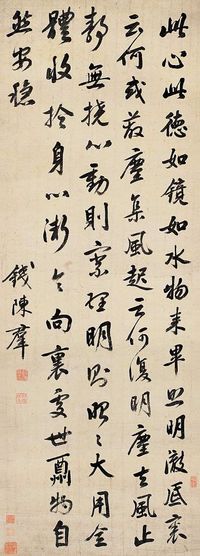 此心此德如鏡如水物来畢照明澈底裏
云何或蔽塵集風起云何復明塵去風止
静無撓心動則察理明則昭〻大用全
體收於身心漸令向裏處世酬物自
然安穩
錢陳羣